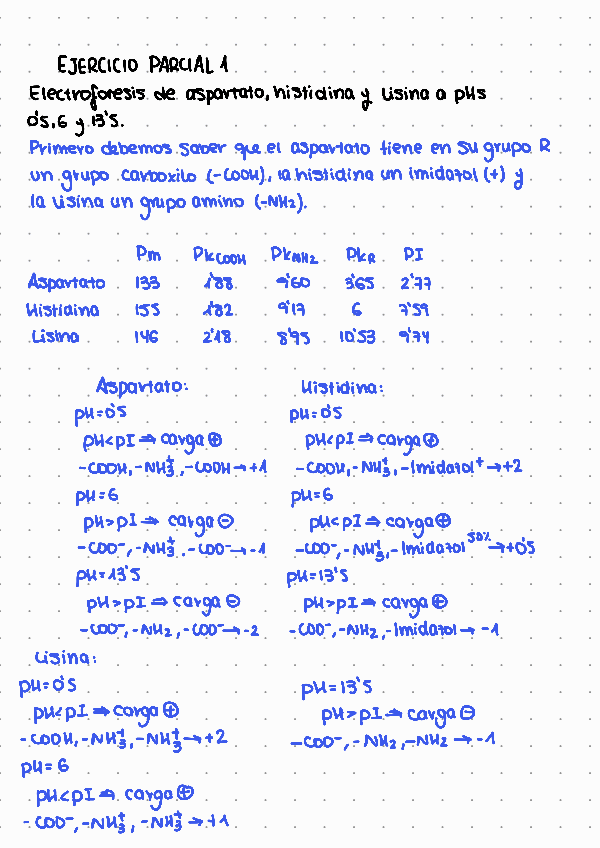 EJERCICIO PARCIAL 1
Electroforesis de aspartato, histidina y lisina a pHs
0'5, 6 y 13'5.
Primero debemos saber que el aspartato tiene en su grupo R
un grupo carboxilo (-COOH), la histidina un imidazol (+) y
la lisina un grupo amino (-NH₂).
Pm PkCOOH PkNH2 PkR PI
Aspartato 133 1'88 9'60 3'65 2'77
Histidina 155 1'82 9'17 6 7'59
Lisina 146 2'18 8'95 10'53 9'74
Aspartato:
pH=0'5
pH<pI ⇒ carga ⊕
-COOH, -NH₃⁺, -COOH → +1
pH=6
pH>pI ⇒ carga ⊖
-COO⁻, -NH₃⁺, -COO⁻ → -1
pH=13'5
pH>pI ⇒ carga ⊖
-COO⁻, -NH₂, -COO⁻ → -2
Histidina:
pH=0'5
pH<pI ⇒ carga ⊕
-COOH, -NH₃⁺, -Imidazol⁺ → +2
pH=6
pH<pI ⇒ carga ⊕
-COO⁻, -NH₃⁺, -Imidazol 50% → +0'5
pH=13'5
pH>pI ⇒ carga ⊖
-COO⁻, -NH₂, -Imidazol → -1
Lisina:
pH=0'5
pH<pI ⇒ carga ⊕
-COOH, -NH₃⁺, -NH₃⁺ → +2
pH=6
pH<pI ⇒ carga ⊕
-COO⁻, -NH₃⁺, -NH₃⁺ → +1
pH=13'5
pH>pI ⇒ carga ⊖
-COO⁻, -NH₂, -NH₂ → -1